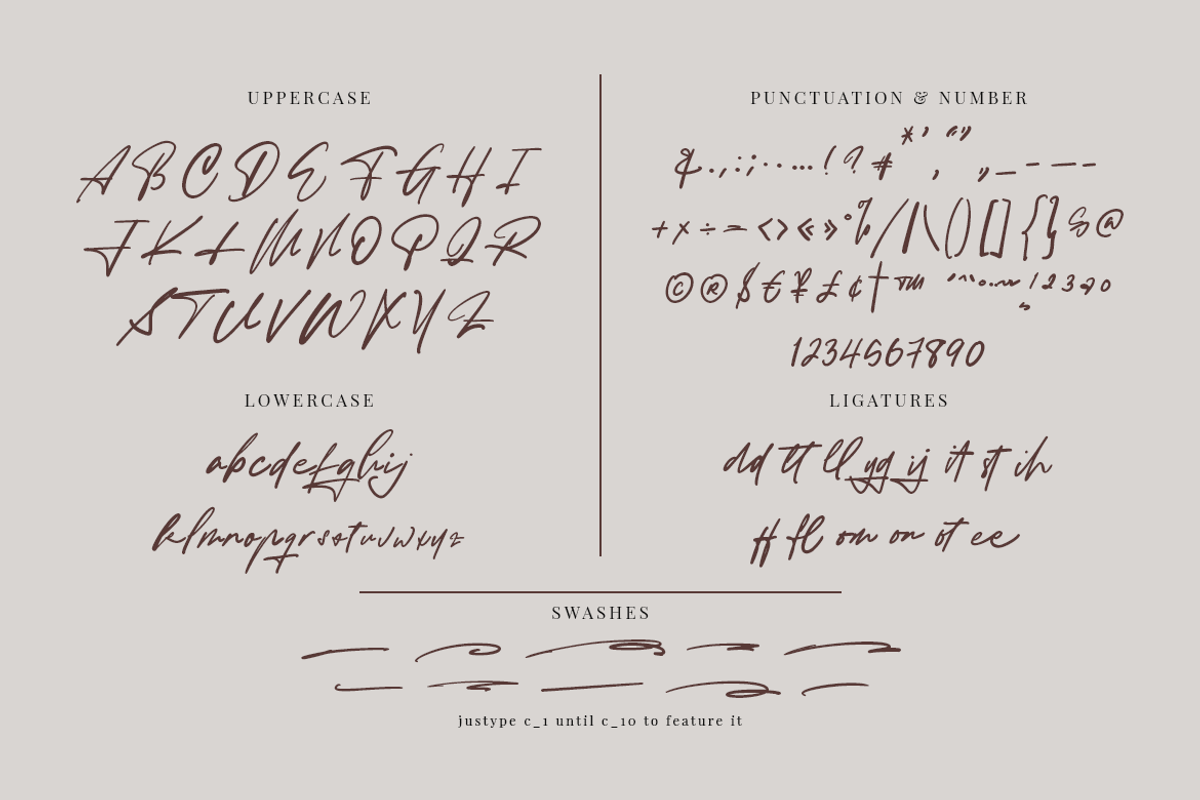 UPPERCASE
A B C D E F G H I
J K L M N O P Q R
S T U V W X Y Z
LOWERCASE
abcdefghij
klmnopqrstuvwxyz
PUNCTUATION & NUMBER
& . , : ; · • … ! ? # * ’ ‚ “ ” „ _ - – —
+ × ÷ = < > « » ° % / | \ ( ) [ ] { } § @
© ® $ € ¥ £ ¢ † ™
1234567890
LIGATURES
dd tt ll gg ij it st ih
ff fl om on ot ee
SWASHES
justype c_1 until c_10 to feature it